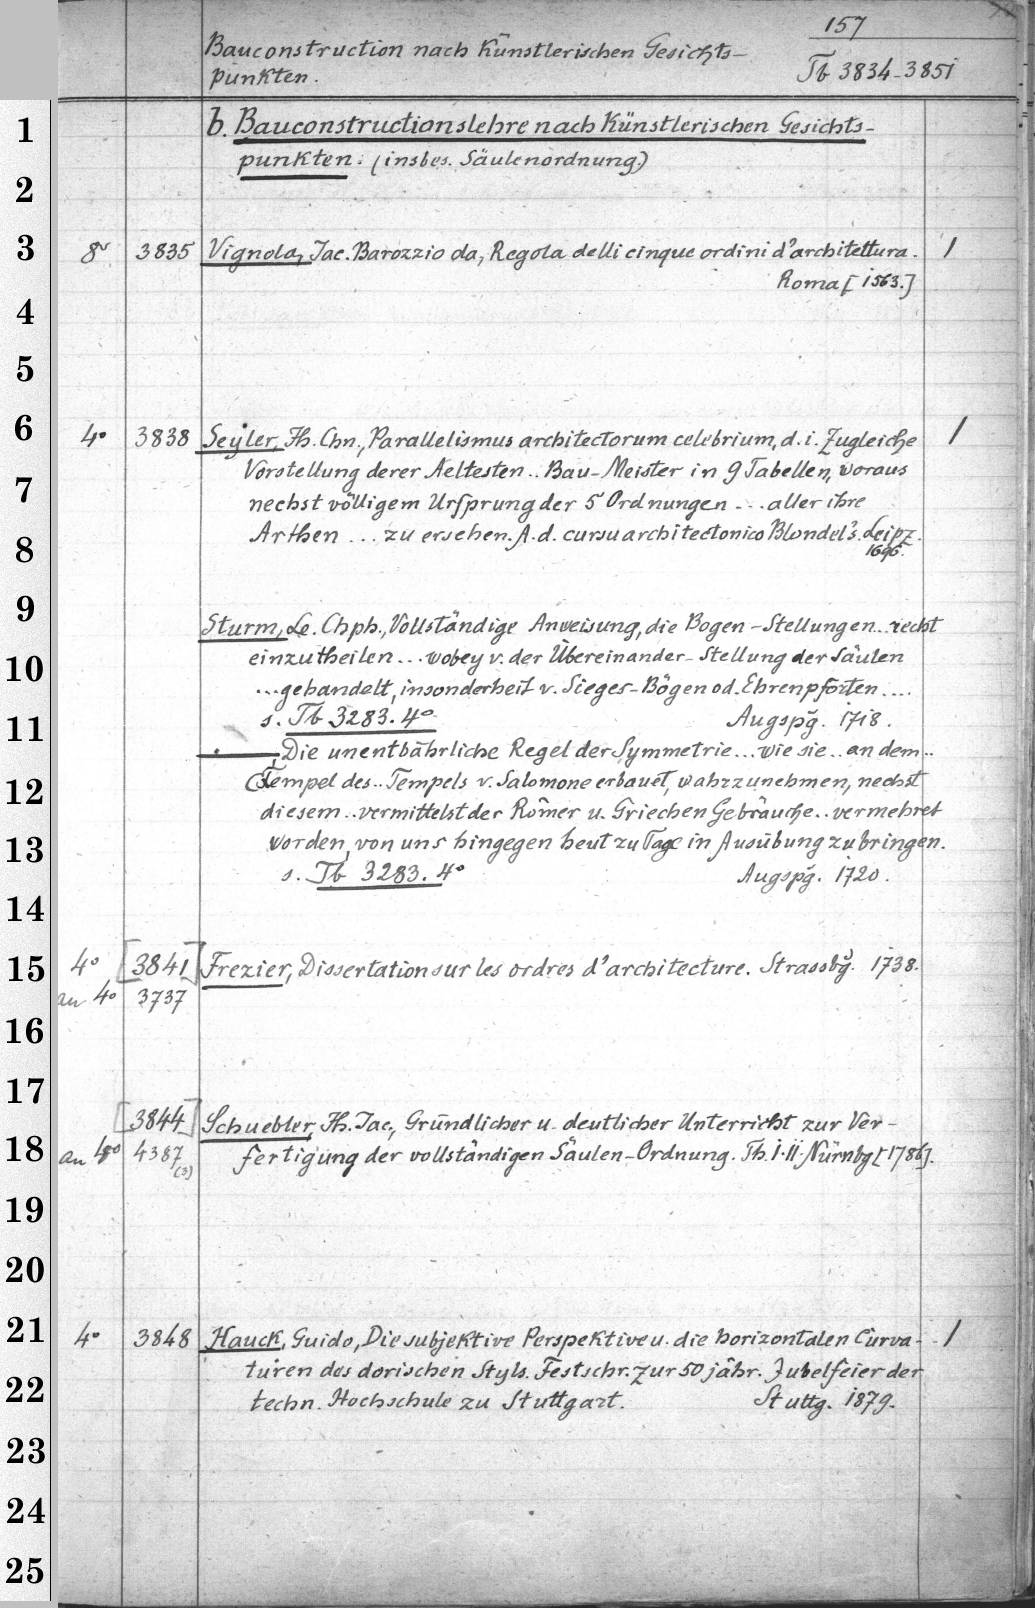 157
Bauconstruction nach Künstlerischen Gesichts-
punkten.
Tb 3834-3851
b. Bauconstructionslehre nach Künstlerischen Gesichts-
punkten. (insbes. Säulenordnung.)
8° 3835 Vignola, Jac. Barozzio da, Regola delli cinque ordini d'architettura. 1
Roma [1563.]
4° 3838 Seyler, Fh. Chn., Parallelismus architectorum celebrium, d. i. Zugleiche 1
Vorstellung derer Aeltesten .. Bau-Meister in 9 Tabellen, woraus
nechst völligem Ursprung der 5 Ordnungen ... aller ihre
Arthen ... zu ersehen. A. d. cursu architectonico Blondel's. Leipz.
1696.
Sturm, Le. Chph., Vollständige Anweisung, die Bogen-Stellungen .. recht
einzutheilen ... wobey v. der Übereinander-Stellung der Säulen
... gehandelt, insonderheit v. Sieges-Bögen od. Ehrenpforten ....
s. Tb 3283. 4° Augspg. 1718.
—, Die unentbährliche Regel der Symmetrie ... wie sie .. an dem ..
Tempel des .. Tempels v. Salomone erbauet, wahrzunehmen, nechst
diesem .. vermittelst der Römer u. Griechen Gebräuche .. vermehret
worden, von uns hingegen heut zu Tage in Ausübung zu bringen.
s. Tb 3283. 4° Augspg. 1720.
4° [3841] Frezier, Dissertation sur les ordres d'architecture. Strassbg. 1738.
an 4° 3737
[3844] Schuebler, Jh. Jac., Gründlicher u. deutlicher Unterricht zur Ver-
an 4° 4387 fertigung der vollständigen Säulen-Ordnung. Th. I. II. Nürnbg [1786].
(3)
4° 3848 Hauck, Guido, Die subjektive Perspektive u. die horizontalen Curva- 1
turen des dorischen Styls. Festschr. zur 50 jähr. Jubelfeier der
techn. Hochschule zu Stuttgart. Stuttg. 1879.
1
2
3
4
5
6
7
8
9
10
11
12
13
14
15
16
17
18
19
20
21
22
23
24
25